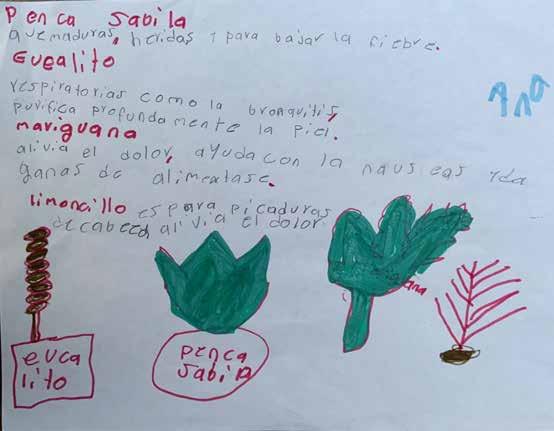 Penca Sabila
quemaduras, heridas y para bajar la fiebre.
Euealito
respiratorias como la bronquitis,
purifica profundamente la piel.
Ana
mariguana
alivia el dolor, ayuda con la nauseas yda
ganas de alimentase.
limoncillo es para picaduras
de cabeza alivia el dolor.
ana
euca
lito
penca
sabila